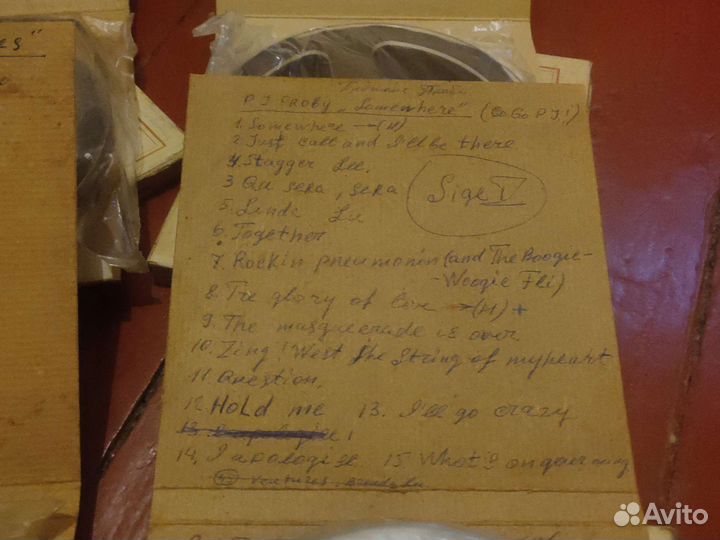 ES"
P J PROBY „Somewhere" (Go Go P J!)
1. Somewhere →(H)
2. Just call and I'll be there
4. Stagger Lee.
3 Qu sera, sera
Side V
5. Linda Lu
6. Together
7. Rockin pneumonin (and The Boogie-
-Woogie Fli)
8. Tre glory of Love →(H) +
9. The masquerade is over.
10. Zing! West the String of my heart
11. Question.
12. Hold me 13. I'll go crazy
14. I apologise 15. What's on your mind
Ventures
Avito